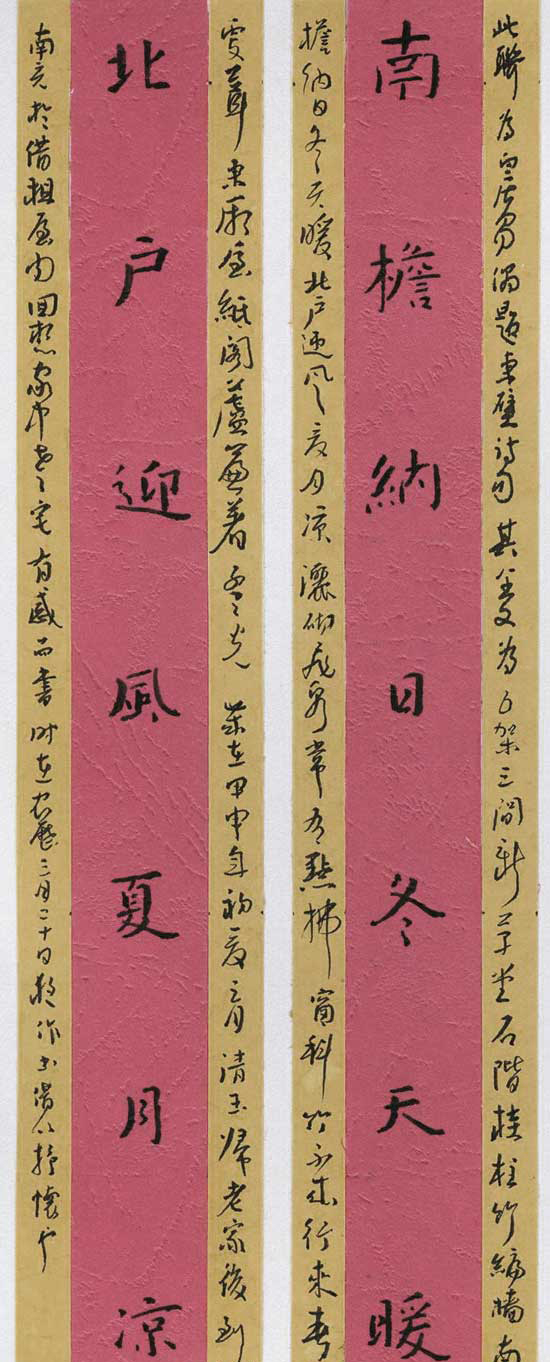 此聯為白居易偶題東壁詩句其全文為五架三間新草堂石階桂柱竹編墻南
南檐納日冬天暖
檐納日冬天暖北戶迎風夏月涼灑砌飛泉常有點拂窗斜竹不成行來春
更葺東廂屋紙閣蘆簾著孟光 歲在甲申年初夏 月清玉歸老家後到
北戶迎風夏月涼
南京於借租屋內回想家中老宅有感而書時在農曆三月二十日 作 以抒懷也